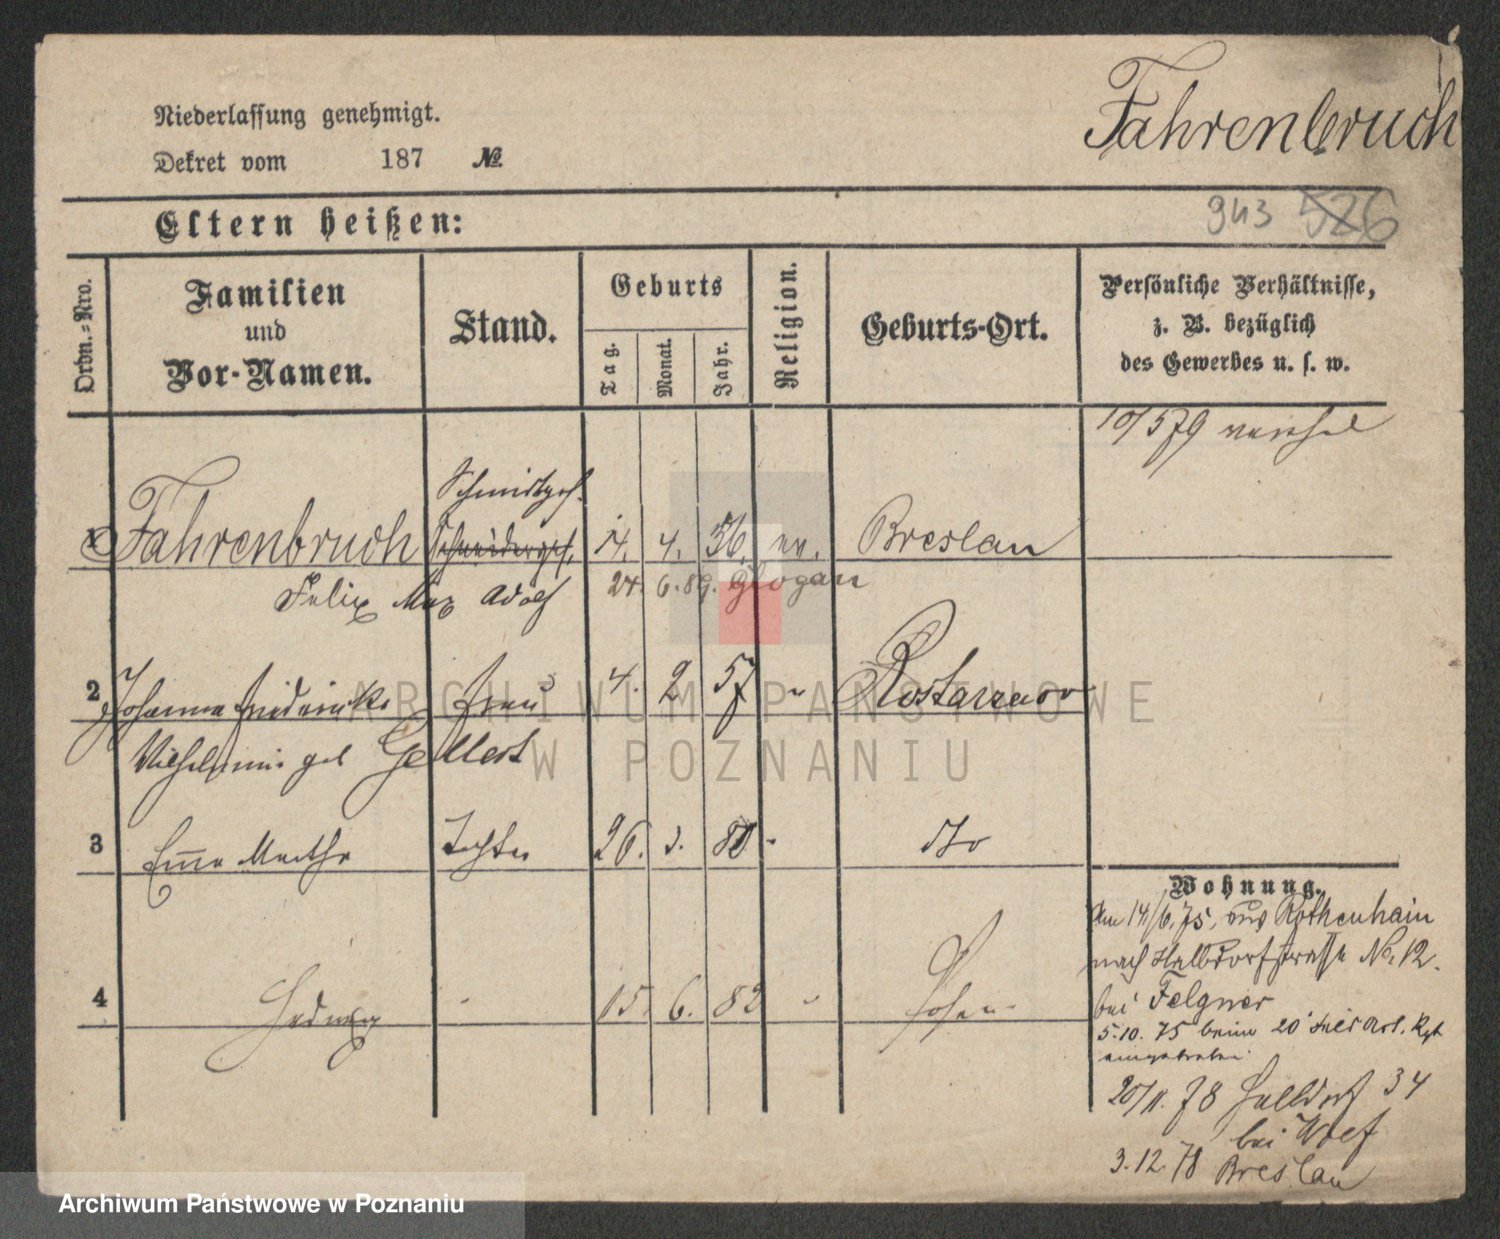 Fahrenbruch
Niederlassung genehmigt.
Dekret vom 187 №.
Eltern heißen:
943 526
Ordn.-Nro.
Familien
und
Vor-Namen.
Stand.
Geburts
Tag.
Monat.
Jahr.
Religion.
Geburts-Ort.
Persönliche Verhältnisse,
z. B. bezüglich
des Gewerbes u. s. w.
10/5 79
Schmidtges.
1 Fahrenbruch Schneiderges. 14. 4. 56. ev. Breslau
Felix Max Adolf 24. 6. 89. Glogau
2 Johanna Friederike Frau 4. 2 57 " Rostarzewo
Wilhelmine geb Gellert
3 Emma Martha Tochter 26. 3. 80 " dto
4 Hedwig " 15. 6. 82 " Posen
Wohnung.
Am 14/6. 75, aus Rothenhain
nach Halbdorfstrasse No. 12.
bei Felgner
5.10. 75 beim 20 Art. Rgt
eingetreten
20/11. 78 Halbdorf 34
bei
3.12.78 Breslau
ARCHIWUM PAŃSTWOWE
W POZNANIU
Archiwum Państwowe w Poznaniu